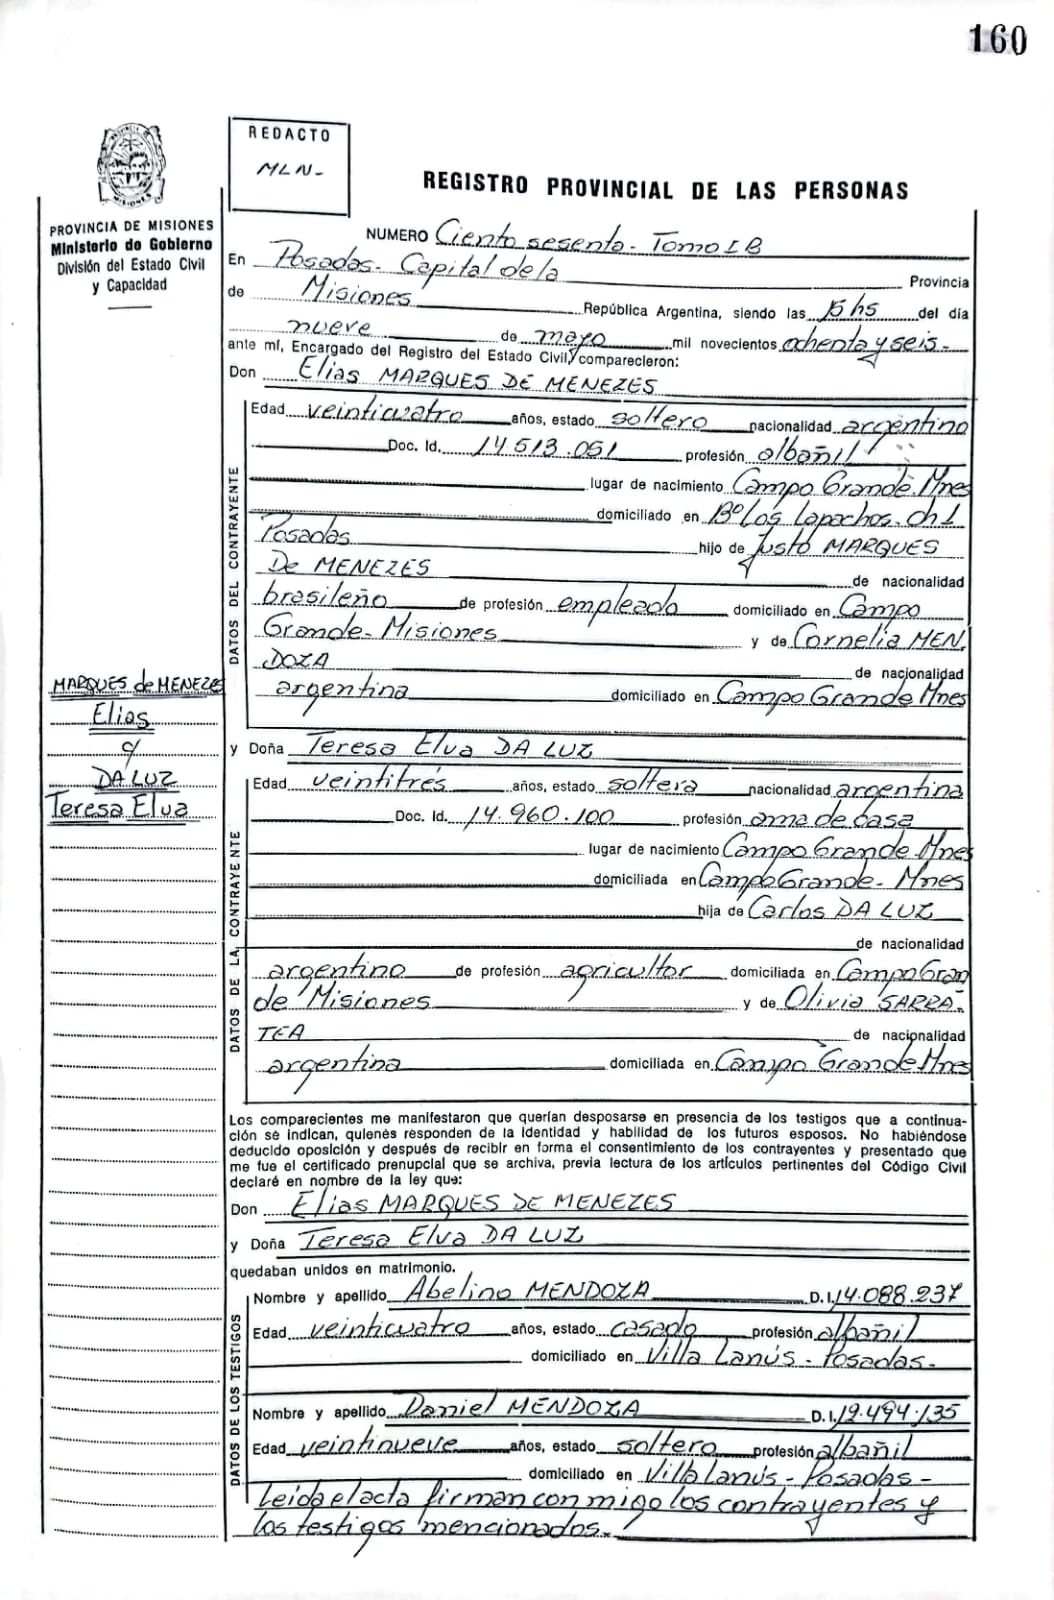 160
REDACTO
MLN-
REGISTRO PROVINCIAL DE LAS PERSONAS
PROVINCIA DE MISIONES
Ministerio de Gobierno
División del Estado Civil
y Capacidad
NUMERO Ciento sesenta- Tomo I B
En Posadas- Capital de la Provincia
de Misiones República Argentina, siendo las 15 hs del día
nueve de mayo mil novecientos ochenta y seis-
ante mí, Encargado del Registro del Estado Civil, comparecieron:
Don Elias MARQUES DE MENEZES
DATOS DEL CONTRAYENTE
Edad veinticuatro años, estado soltero nacionalidad argentino
Doc. Id. 14.513.051 profesión albañil
lugar de nacimiento Campo Grande Mnes
domiciliado en Bº Los Lapachos. ch 1
Posadas hijo de Justo MARQUES
De MENEZES de nacionalidad
brasileño de profesión empleado domiciliado en Campo
Grande- Misiones y de Cornelia MEN
DOZA de nacionalidad
argentina domiciliado en Campo Grande Mnes
MARQUES de MENEZES
Elias
c/
DA LUZ
Teresa Elva
y Doña Teresa Elva DA LUZ
DATOS DE LA CONTRAYENTE
Edad veintitrés años, estado soltera nacionalidad argentina
Doc. Id. 14.960.100 profesión ama de casa
lugar de nacimiento Campo Grande Mnes
domiciliada en Campo Grande- Mnes
hija de Carlos DA LUZ
de nacionalidad
argentino de profesión agricultor domiciliada en Campo Gran
de Misiones y de Olivia SARRA-
TEA de nacionalidad
argentina domiciliada en Campo Grande Mnes
Los comparecientes me manifestaron que querían desposarse en presencia de los testigos que a continua-
ción se indican, quienes responden de la identidad y habilidad de los futuros esposos. No habiéndose
deducido oposición y después de recibir en forma el consentimiento de los contrayentes y presentado que
me fue el certificado prenupcial que se archiva, previa lectura de los artículos pertinentes del Código Civil
declaré en nombre de la ley que:
Don Elias MARQUES DE MENEZES
y Doña Teresa Elva DA LUZ
quedaban unidos en matrimonio.
DATOS DE LOS TESTIGOS
Nombre y apellido Abelino MENDOZA D.I. 14.088.237
Edad veinticuatro años, estado casado profesión albañil
domiciliado en Villa Lanús- Posadas-
Nombre y apellido Daniel MENDOZA D.I. 12.494.135
Edad veintinueve años, estado soltero profesión albañil
domiciliado en Villa Lanús- Posadas-
Leida el acta firman con migo los contrayentes y
los testigos mencionados.-